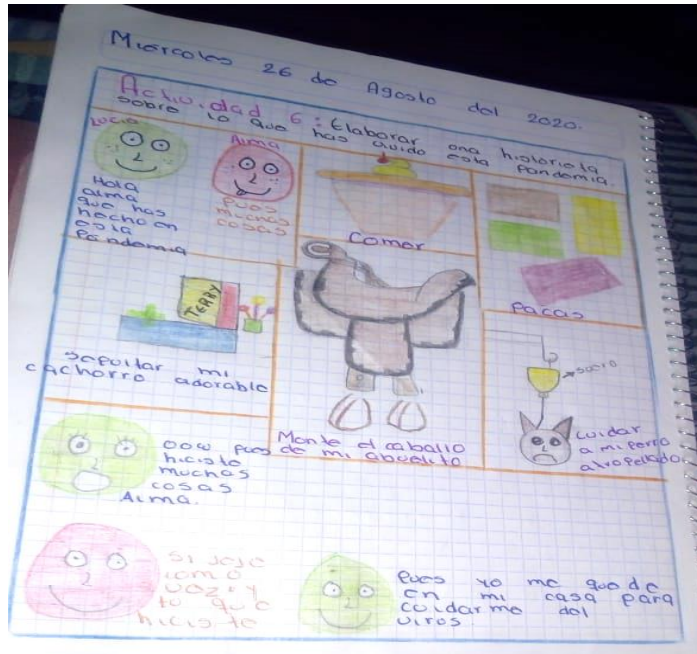 Miércoles 26 de Agosto del 2020.
Actividad 6: Elaborar una historieta
sobre lo que has auido esta pandemia.
Lucia
Hola
alma
que has
hecho en
esta
Pandemia
Alma
pues
muchas
cosas
comer
pacas
TERRY
sepultar mi
cachorro adorable
Monte el caballo
de mi abuelito
suero
cuidar
a mi perro
atropellado
oow pues
hiciste
muchas
cosas
Alma.
si jeje
como
vaz? y
tu que
hiciste
Pues yo me quede
en mi casa para
cuidarme del
viros